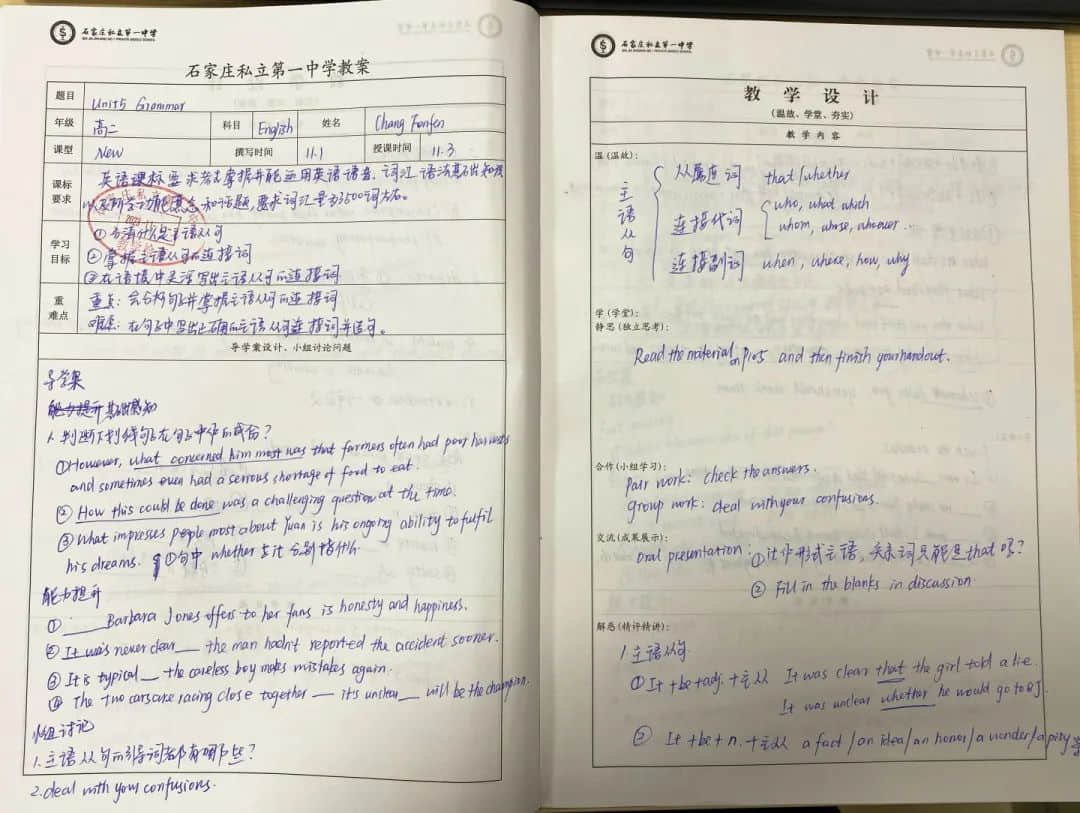 石家庄私立第一中学
石家庄私立第一中学教案
题目 Unit5 Grammar
年级 高二 科目 English 姓名 Chang
课型 New 撰写时间 11.1 授课时间 11.3
课标要求 英语课标要求考生掌握并能运用英语语音、词汇、语法基础知识
以及所学功能意念和话题,要求词汇量为3500词左右。
学习目标 ①弄清什么是主语从句
②掌握主语从句的连接词
③在语境中灵活写出主语从句的连接词
重难点 重点:会分析句子并掌握主语从句的连接词
难点:在句子中写出正确的主语从句连接词并造句。
导学案设计、小组讨论问题
导学案
基础感知
1.判断下划线句子在句子中作的成份?
①However, what concerned him most was that farmers often had poor harvests
and sometimes even had a serious shortage of food to eat.
② How this could be done was a challenging question at the time.
③ What impresses people most about Yuan is his ongoing ability to fulfil
his dreams.
能力提升
① ___ Barbara Jones offers to her fans is honesty and happiness.
② It was never clear ___ the man hadn't reported the accident sooner.
③ It is typical ___ the careless boy makes mistakes again.
④ The two cars are racing close together — it's unclear ___ will be the champion.
小组讨论
1.主语从句的引导词都有哪些?
2.deal with your confusions.
石家庄私立第一中学
教学设计
(温故、学堂、夯实)
教学内容
温(温故):
主语从句
从属连词 that/whether
连接代词 who, what which
whom, whose, whoever.
连接副词 when, where, how, why
学(学堂):
静思(独立思考):
Read the material on P105 and then finish your handout.
合作(小组学习):
Pair work: check the answers.
group work: deal with your confusions.
交流(成果展示):
oral presentation: ①it作形式主语,关系词只能是that吗?
② Fill in the blanks in discussion
解惑(精评精讲):
1.主语从句
①It+be+adj.+主从 It was clear that the girl told a lie.
It was unclear whether he would go to BJ.
② It +be+n.+主从 a fact/an idea/an honor/a wonder/a pity等